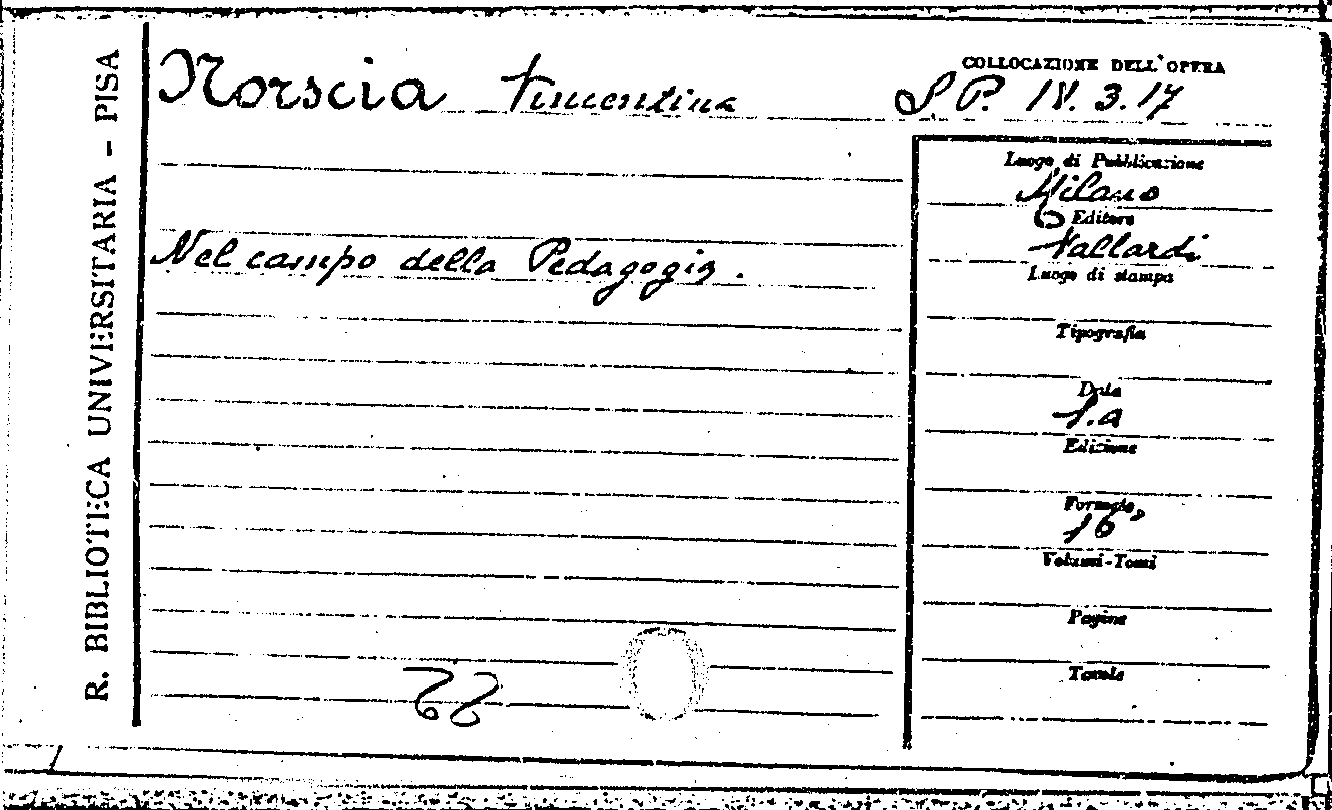 R. BIBLIOTECA UNIVERSITARIA - PISA
COLLOCAZIONE DELL'OPERA
Norscia
S. P. 18. 3. 17
Luogo di Pubblicazione
Milano
Editore
Vallardi
Nel campo della Pedagogia.
Luogo di stampa
Tipografia
Data
s.a
Edizione
Formato
16°
Volumi-Tomi
Pagine
Tavole